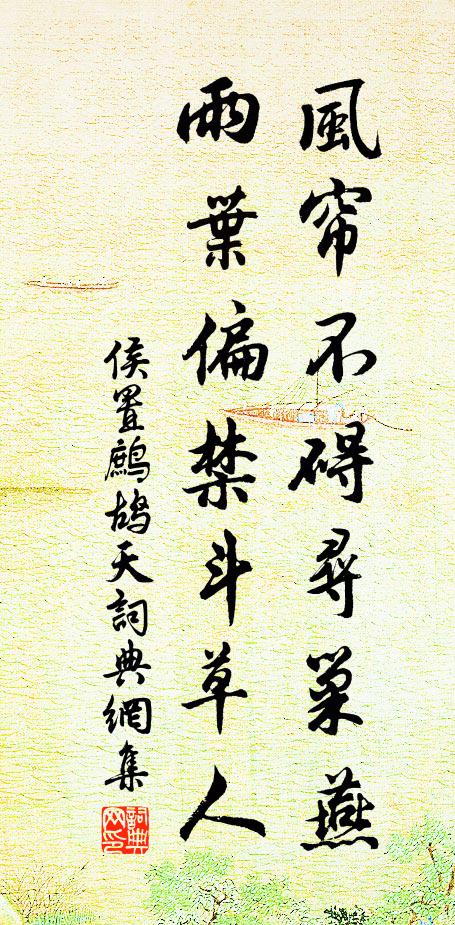 風帘不碍尋巢燕
雨葉偏禁斗草人
侯置鷓鴣天詞典網集
詞典
网印